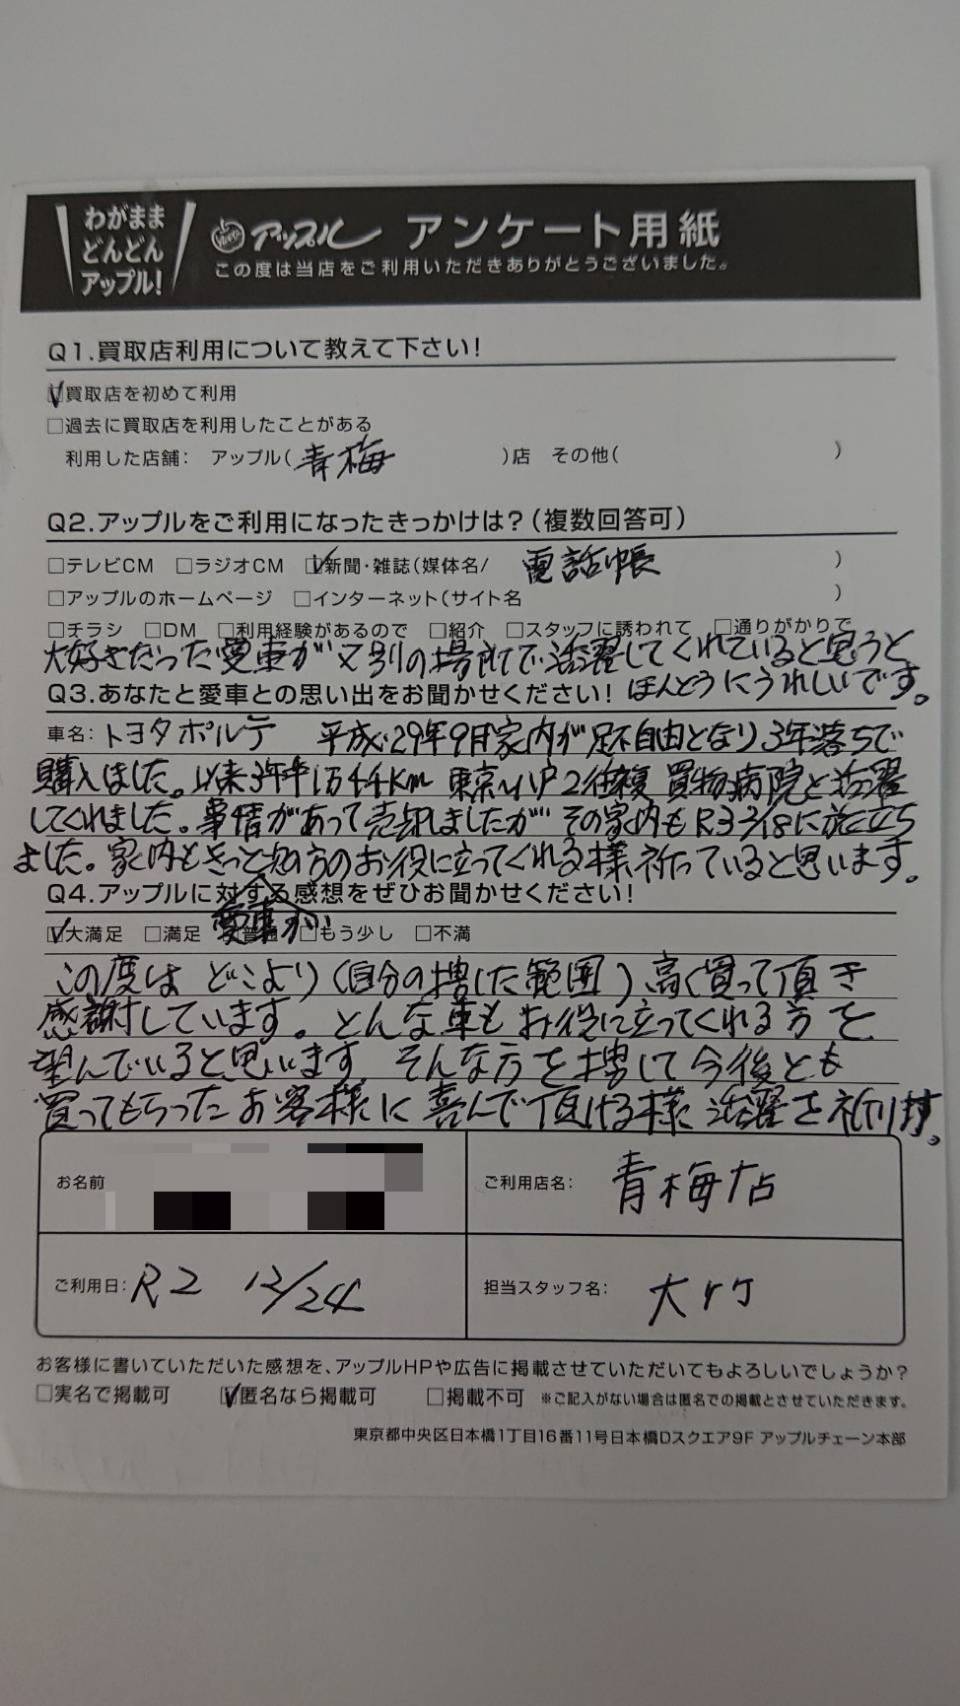 わがまま
どんどん
アップル!
アップル アンケート用紙
この度は当店をご利用いただきありがとうございました。
Q1.買取店利用について教えて下さい!
☑買取店を初めて利用
□過去に買取店を利用したことがある
利用した店舗: アップル(青梅 )店 その他( )
Q2.アップルをご利用になったきっかけは?(複数回答可)
□テレビCM □ラジオCM ☑新聞・雑誌(媒体名/ 電話帳 )
□アップルのホームページ □インターネット(サイト名 )
□チラシ □DM □利用経験があるので □紹介 □スタッフに誘われて □通りがかりで
大好きだった愛車が又別の場所で活躍してくれていると思うと
ほんとうにうれしいです。
Q3.あなたと愛車との思い出をお聞かせください!
車名:トヨタポルテ 平成29年9月家内が足不自由となり3年落ちで
購入しました。以来3年半1万4千Km 東京 2往複 買物病院と活躍
してくれました。事情があって売却しましたがその家内もR3 3/18に旅立ち
ました。家内もきっと の方のお役に立ってくれる様祈っていると思います。
Q4.アップルに対する感想をぜひお聞かせください!
愛車が
☑大満足 □満足 □普通 □もう少し □不満
この度は どこより(自分の捜した範囲)高く買って頂き
感謝しています。どんな車もお役に立ってくれる方を
望んでいると思います そんな方を捜して今後とも
買ってもらったお客様に喜んで頂ける様活躍を祈ります。
お名前
ご利用店名: 青梅店
ご利用日: R2 12/24
担当スタッフ名: 大竹
お客様に書いていただいた感想を、アップルHPや広告に掲載させていただいてもよろしいでしょうか?
□実名で掲載可 ☑匿名なら掲載可 □掲載不可 ※ご記入がない場合は匿名での掲載とさせていただきます。
東京都中央区日本橋1丁目16番11号日本橋Dスクエア9F アップルチェーン本部